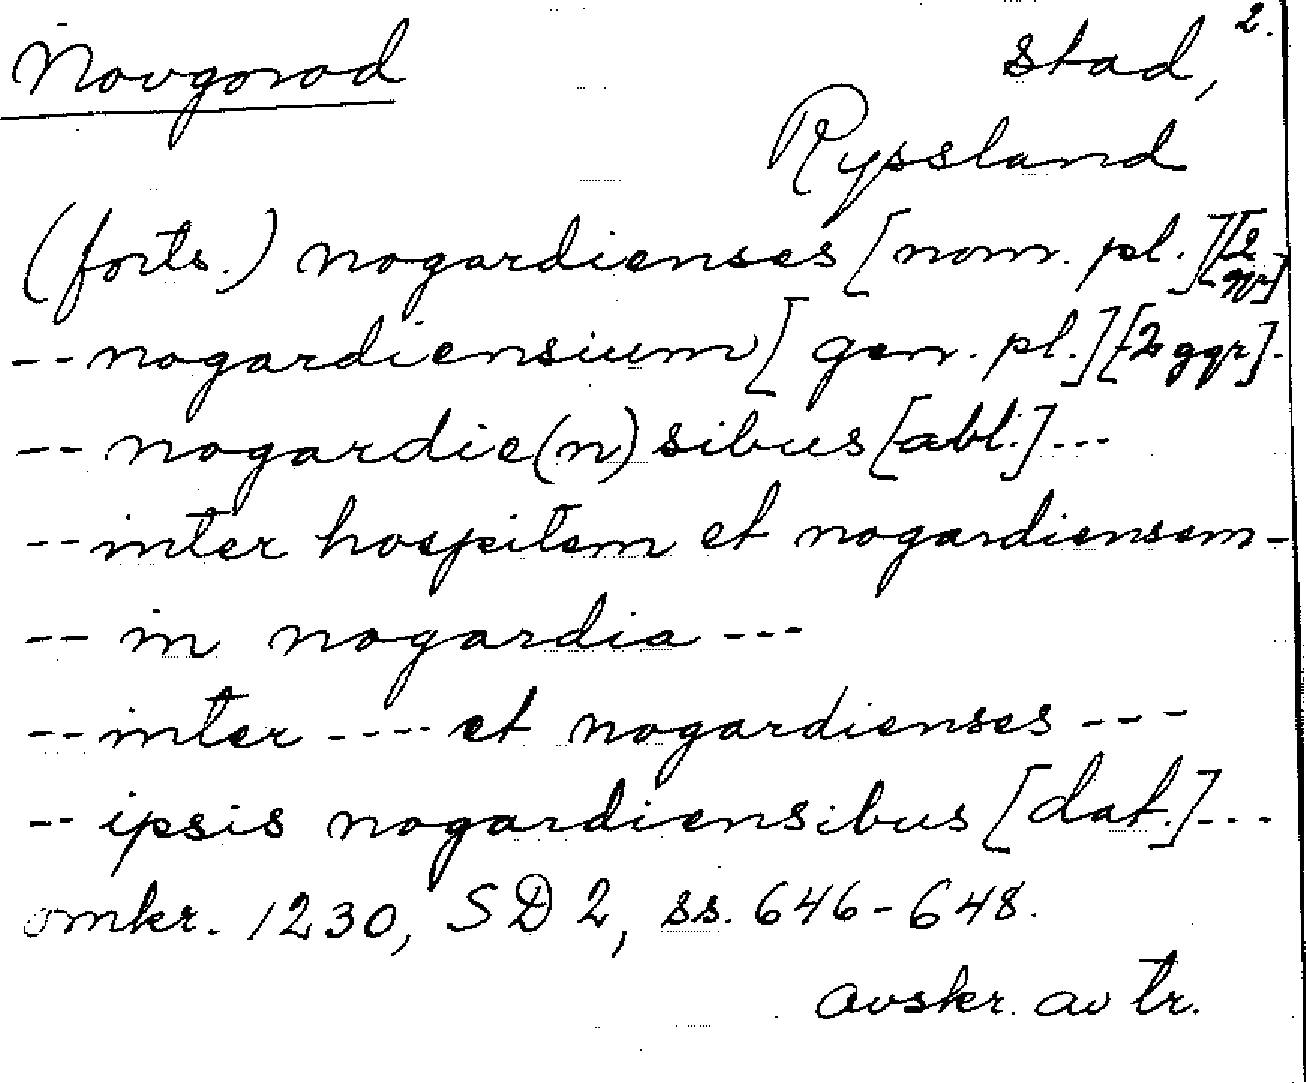 Novgorod stad, 2.
Ryssland
(forts.) nogardienses [nom. pl.] [2 ggr]
-- nogardiensium [gen. pl.] [2 ggr].
-- nogardie(n)sibus [abl.] ---
-- inter hospitem et nogardiensem -
-- in nogardia ---
-- inter ---- et nogardienses ---
-- ipsis nogardiensibus [dat.] ---
omkr. 1230, SD 2, ss. 646-648.
avskr. av tr.